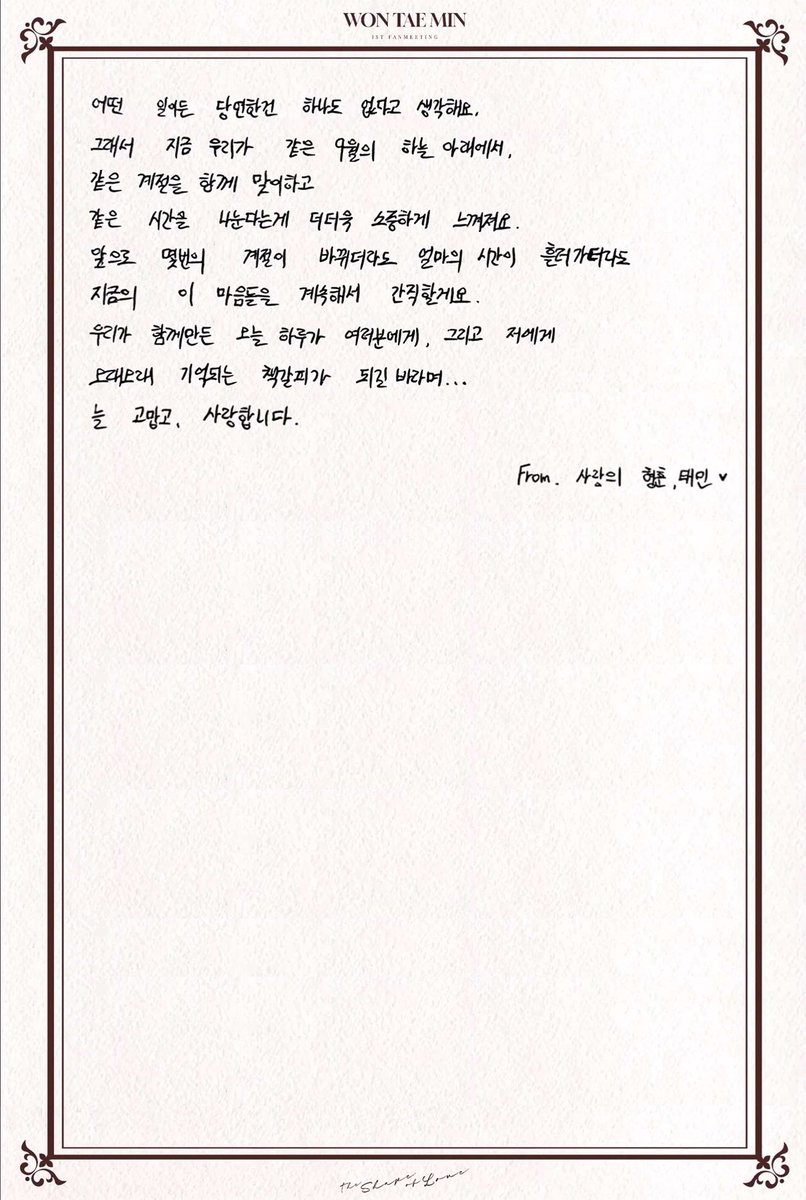 WON TAE MIN
1ST FANMEETING
어떤 일이든 당연한건 하나도 없다고 생각해요.
그래서 지금 우리가 같은 9월의 하늘 아래에서,
같은 계절을 함께 맞이하고
같은 시간을 나눈다는게 더더욱 소중하게 느껴져요.
앞으로 몇번의 계절이 바뀌더라도 얼마의 시간이 흘러가더라도
지금의 이 마음들을 계속해서 간직할게요.
우리가 함께만든 오늘 하루가 여러분에게, 그리고 저에게
오래오래 기억되는 책갈피가 되길 바라며...
늘 고맙고, 사랑합니다.
From. 사랑의 태민 ♥
The Shape of Love